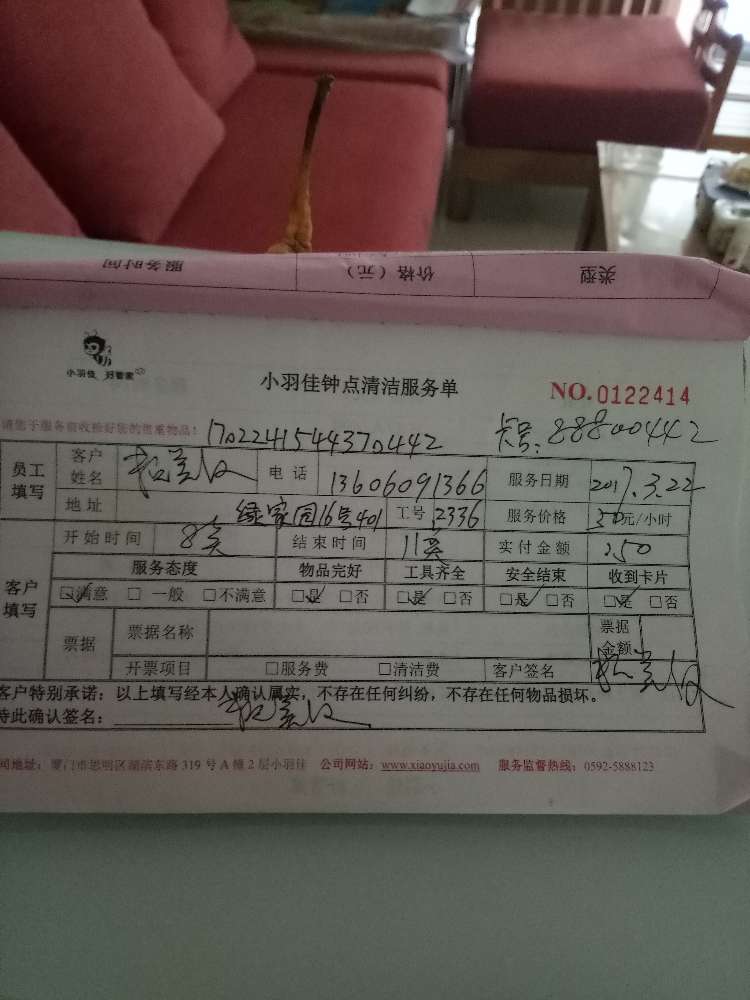 服务时间 价格（元） 类型
小羽佳 好管家
小羽佳钟点清洁服务单 NO.0122414
请您于服务前收检好您的贵重物品！ 1702241544370442 卡号:88800442
员工填写 客户姓名 电话 13606091366 服务日期 2017.3.22
地址 绿家园16号401 工号 2336 服务价格 50元/小时
客户填写 开始时间 8点 结束时间 11点 实付金额 150
服务态度 物品完好 工具齐全 安全结束 收到卡片
☑满意 □一般 □不满意 ☑是 □否 ☑是 □否 ☑是 □否 ☑是 □否
票据 票据名称 票据金额
开票项目 □服务费 □清洁费 客户签名
客户特别承诺：以上填写经本人确认属实，不存在任何纠纷，不存在任何物品损坏。
特此确认签名：
司地址：厦门市思明区湖滨东路319号A幢2层小羽佳 公司网站：www.xiaoyujia.com 服务监督热线：0592-5888123